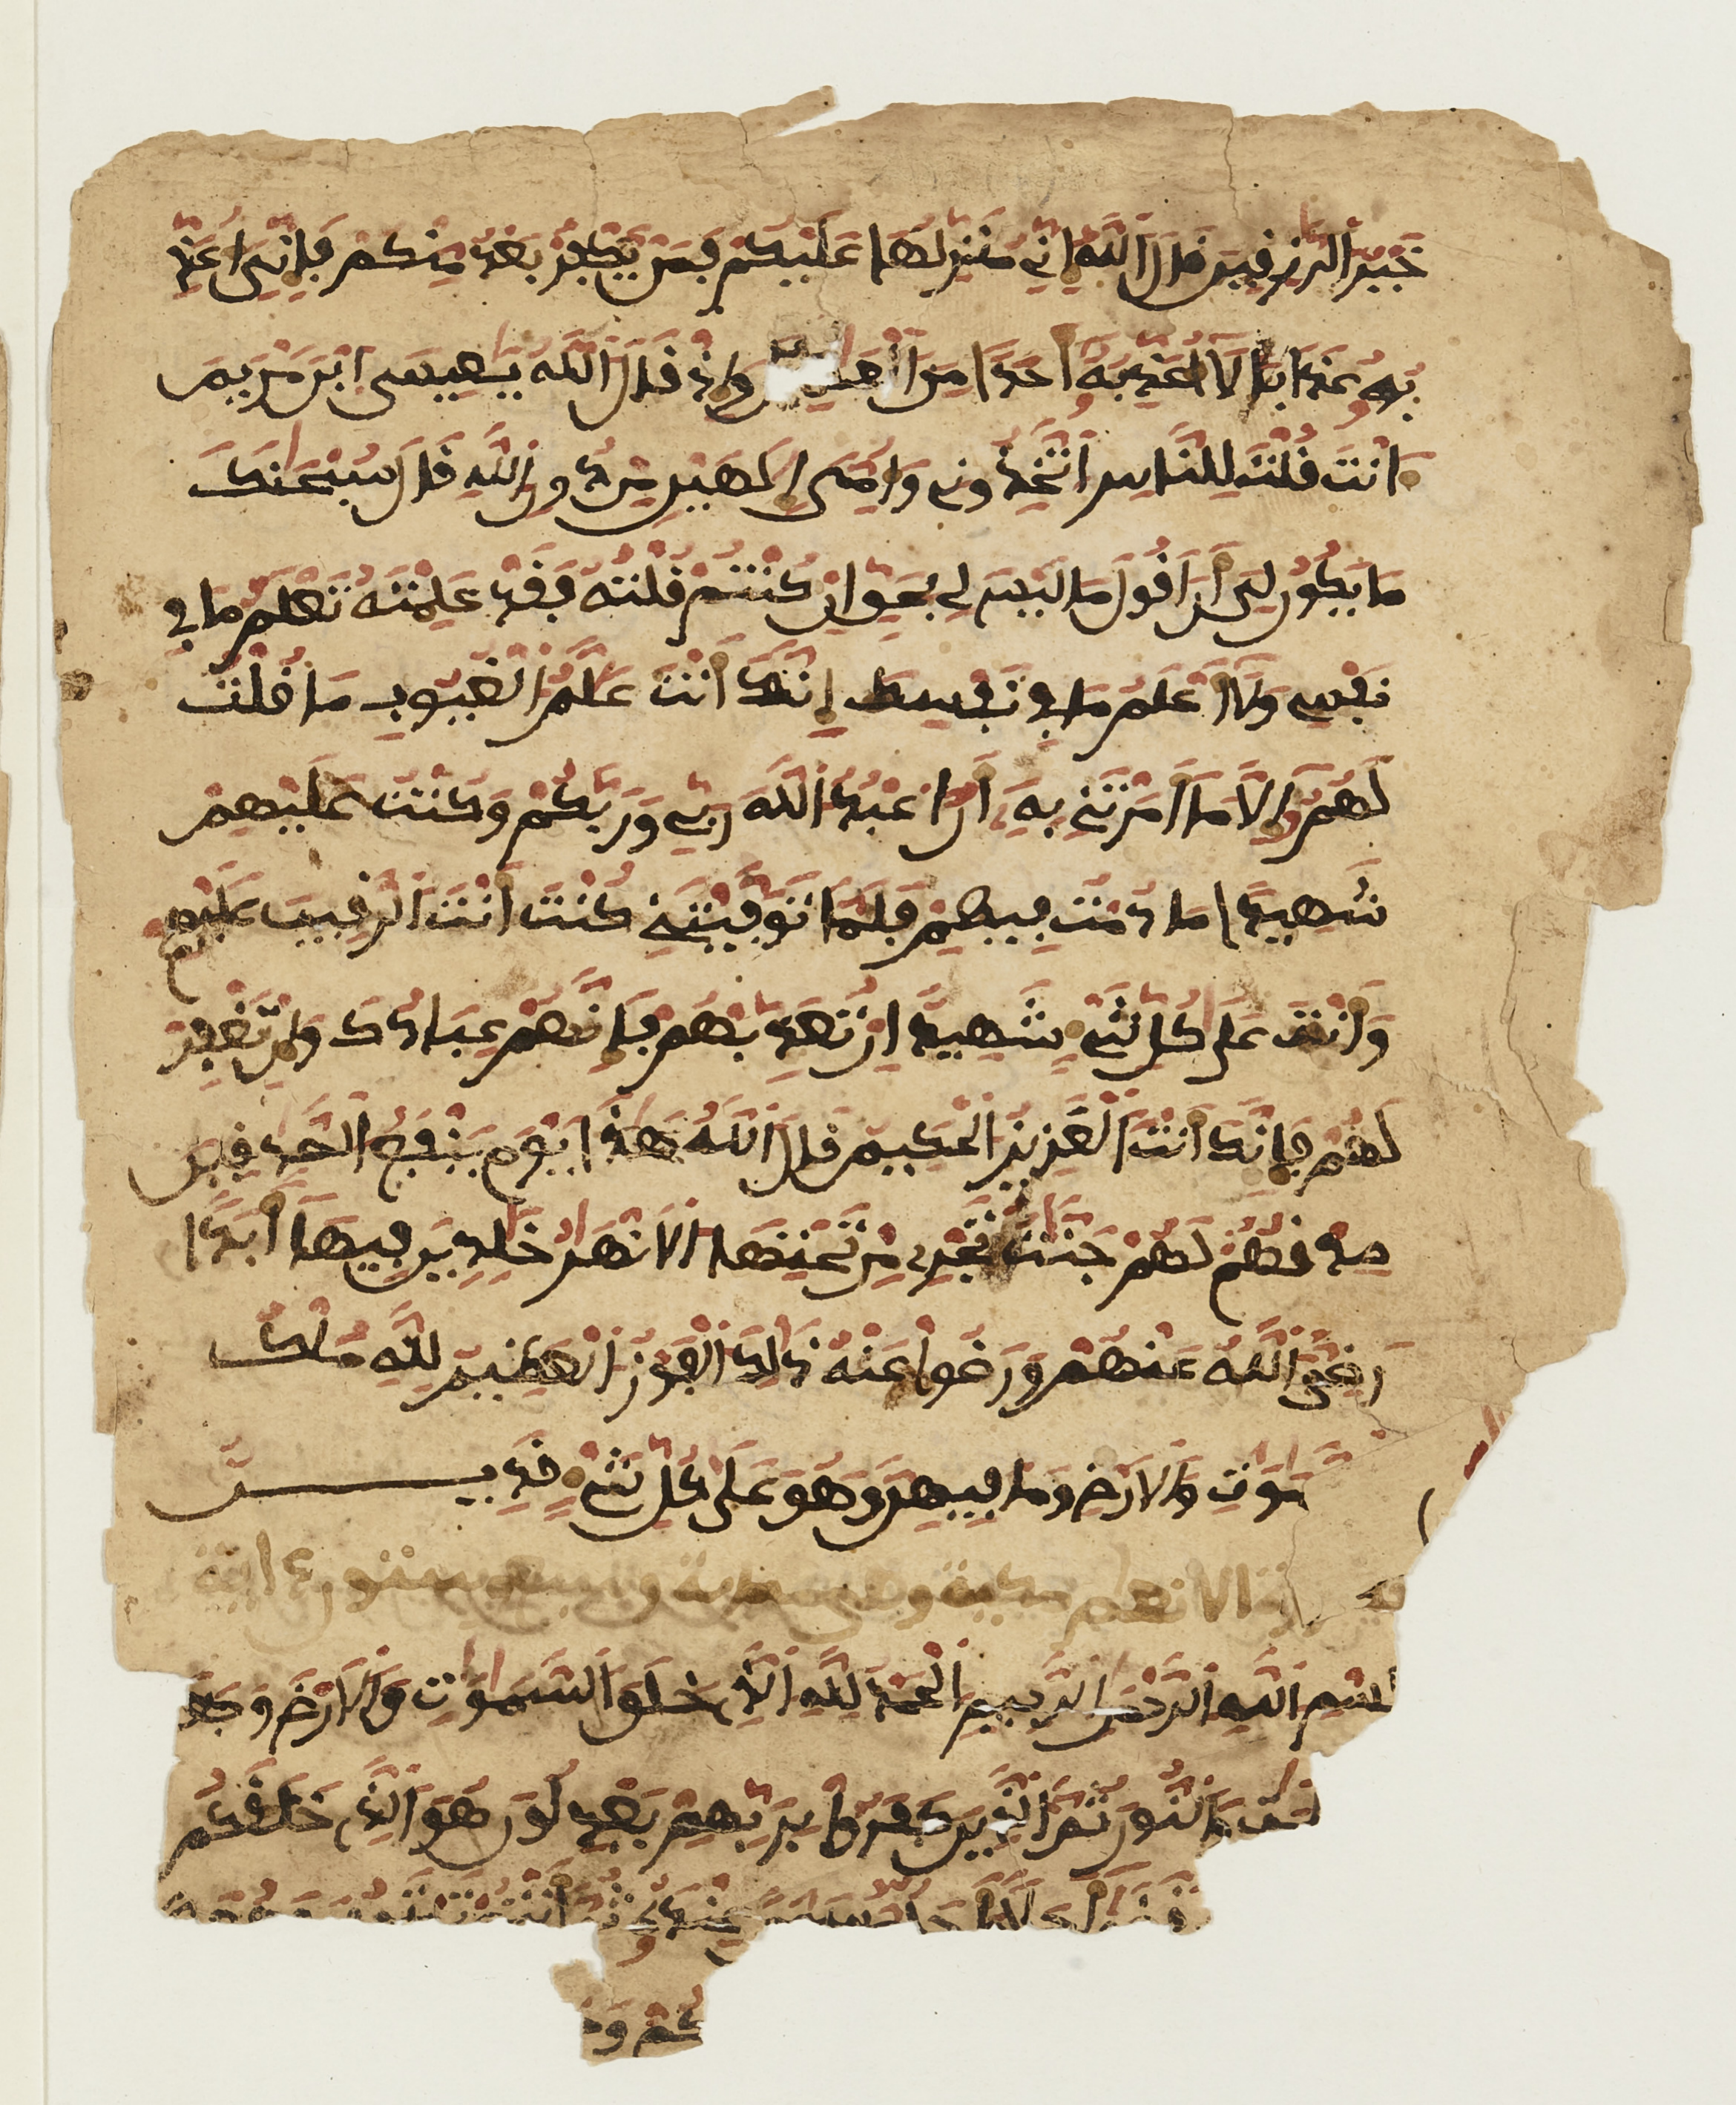 خَيْرُ الرَّزِقِينَ قَالَ اللَّهُ إِنِّي مُنَزِّلُهَا عَلَيْكُمْ فَمَنْ يَّكْفُرْ بَعْدُ مِنكُمْ فَإِنِّيَ أُعَذِّ
بُهُ عَذَابًا لَّا أُعَذِّبُهُ أَحَدًا مِّنَ الْعَلَمِينَ وَإِذْ قَالَ اللَّهُ يَعِيسَى ابْنَ مَرْيَمَ
ءَانتَ قُلْتَ لِلنَّاسِ اتَّخِذُونِي وَأُمِّيَ إِلَهَيْنِ مِن دُونِ اللَّهِ قَالَ سُبْحَنَكَ
مَا يَكُونُ لِيَ أَنْ أَقُولَ مَا لَيْسَ لِي بِحَقٍّ إِن كُنتُ قُلْتُهُ فَقَدْ عَلِمْتَهُ تَعْلَمُ مَا فِي
نَفْسِي وَلَا أَعْلَمُ مَا فِي نَفْسِكَ إِنَّكَ أَنتَ عَلَّمُ الْغُيُوبِ مَا قُلْتُ
لَهُمْ إِلَّا مَا أَمَرْتَنِي بِهِ أَنُ اعْبُدُوا اللَّهَ رَبِّي وَرَبَّكُمْ وَكُنتُ عَلَيْهِمْ
شَهِيدًا مَّا دُمْتُ فِيهِمْ فَلَمَّا تَوَفَّيْتَنِي كُنتَ أَنتَ الرَّقِيبَ عَلَيْهِمْ
وَأَنتَ عَلَى كُلِّ شَيْءٍ شَهِيدٌ إِن تُعَذِّبْهُمْ فَإِنَّهُمْ عِبَادُكَ وَإِن تَغْفِرْ
لَهُمْ فَإِنَّكَ أَنتَ الْعَزِيزُ الْحَكِيمُ قَالَ اللَّهُ هَذَا يَوْمَ يَنفَعُ الصَّدِقِينَ
صِدْقُهُمْ لَهُمْ جَنَّتٌ تَجْرِي مِن تَحْتِهَا الْأَنْهَرُ خَلِدِينَ فِيهَا أَبَدًا
رَّضِيَ اللَّهُ عَنْهُمْ وَرَضُوا عَنْهُ ذَلِكَ الْفَوْزُ الْعَظِيمُ لِلَّهِ مُلْكُ
مَوَتِ وَالْأَرْضِ وَمَا فِيهِنَّ وَهُوَ عَلَى كُلِّ شَيْءٍ قَدِيرٌ
الانعام مكية وهي مائة وستون آية
بِسْمِ اللَّهِ الرَّحْمَنِ الرَّحِيمِ الْحَمْدُ لِلَّهِ الَّذِي خَلَقَ السَّمَوَتِ وَالْأَرْضَ وَجَعَلَ
لُمَتِ وَالنُّورَ ثُمَّ الَّذِينَ كَفَرُوا بِرَبِّهِمْ يَعْدِلُونَ هُوَ الَّذِي خَلَقَكُم
قَضَى أَجَلًا وَأَجَلٌ مُّسَمًّى عِندَهُ ثُمَّ أَنتُمْ تَمْتَرُونَ وَهُوَ
كُمْ وَ